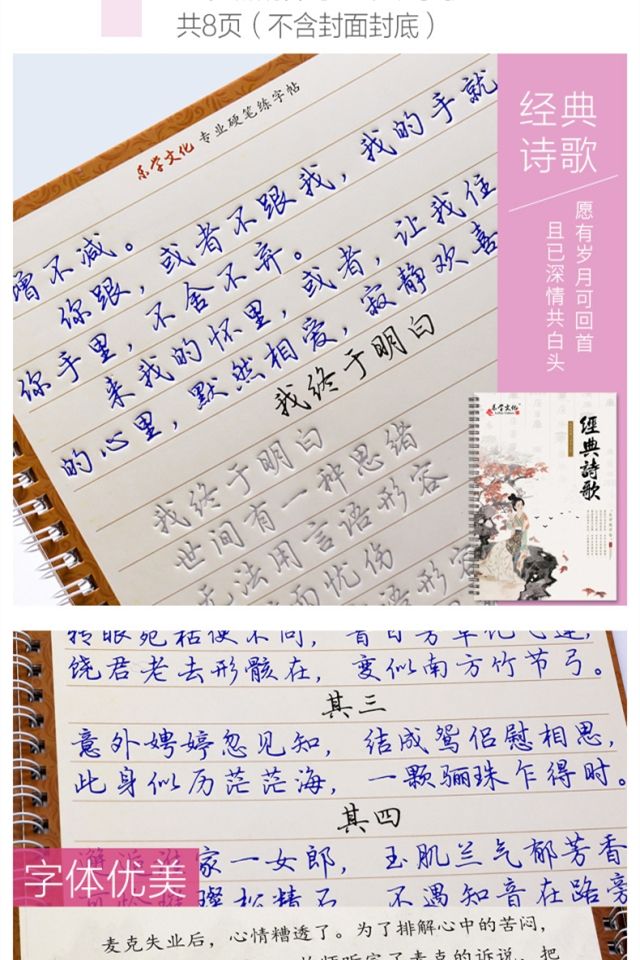 共8页（不含封面封底）
乐学文化 专业硬笔练字帖
增不减。
你跟，或者不跟我，我的手就
你手里，不舍不弃。
来我的怀里，或者，让我住
的心里，默然相爱，寂静欢喜
我终于明白
我终于明白
世间有一种思绪
无法用言语形容
而忧伤
言语形容
经典
诗歌
愿有岁月可回首
且已深情共白头
乐学文化
經典詩歌
饶君老去形骸在，变似南方竹节弓。
其三
意外娉婷忽见知，结成鸳侣慰相思，
此身似历茫茫海，一颗骊珠乍得时。
其四
家一女郎，玉肌兰气郁芳香
不遇知音在路旁
字体优美
麦克失业后，心情糟透了。为了排解心中的苦闷，
听完了麦克的诉说，把